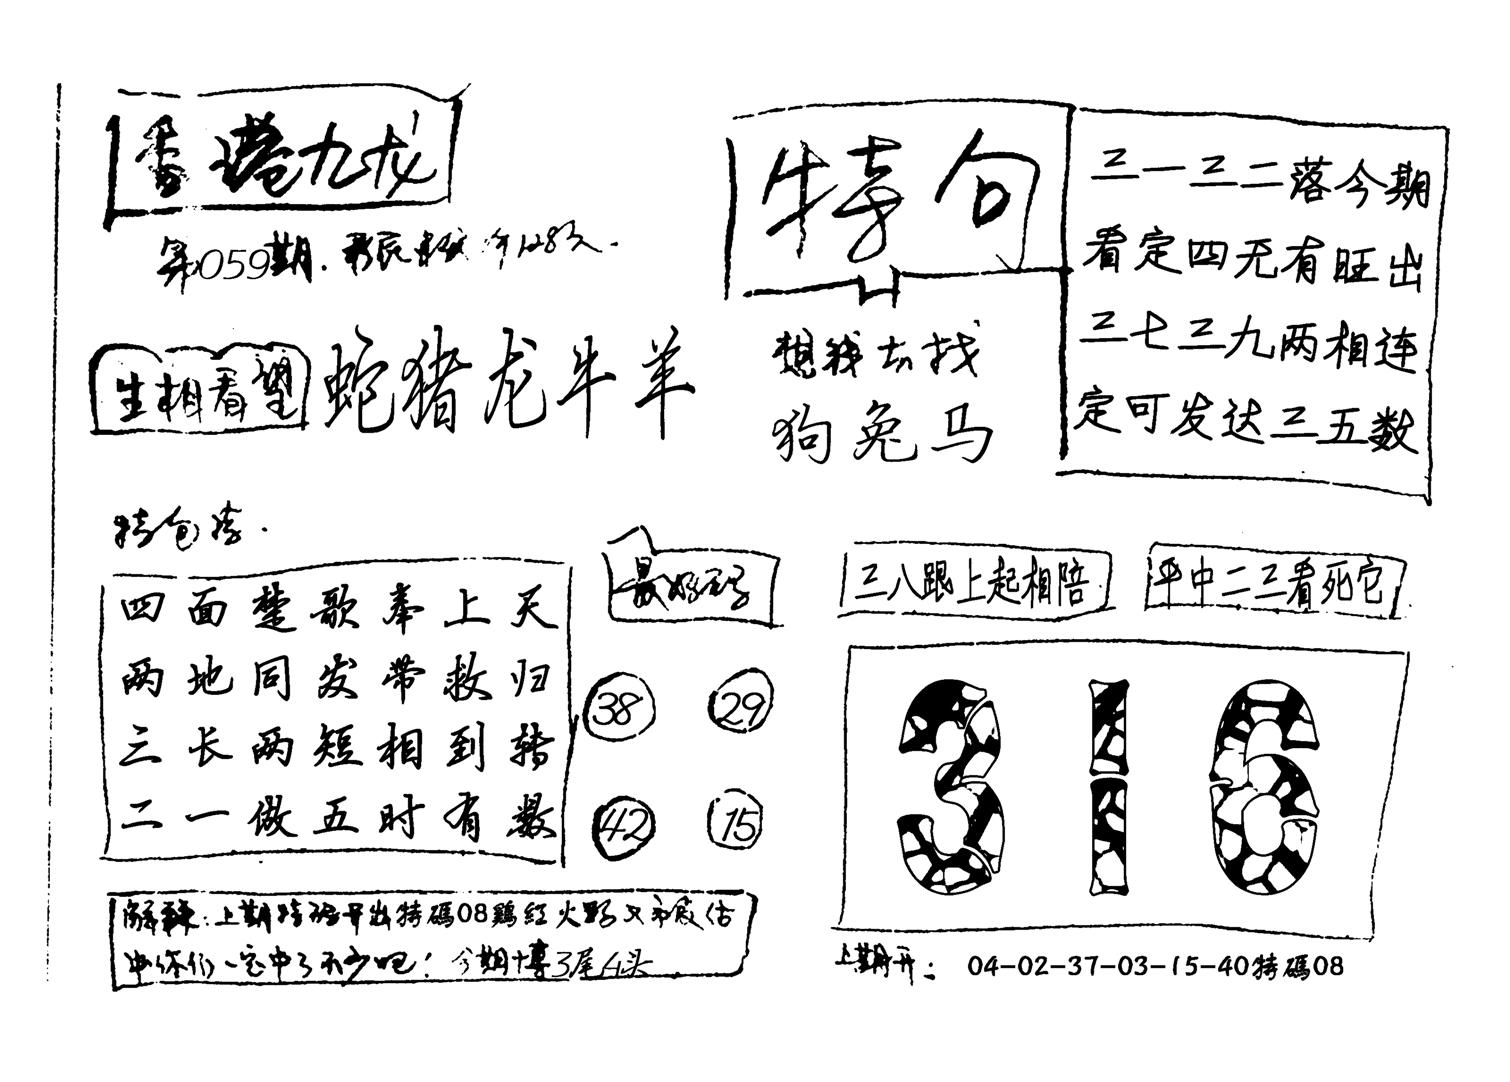 香港九龙
第059期.
生相看望
蛇猪龙牛羊
特句
想钱去找
狗兔马
三一三二落今期
看定四无有旺出
三七三九两相连
定可发达三五数
特包库.
四面楚歌奉上天
两地同发带救归
三长两短相到转
二一做五时有数
最好码
38
29
42
15
三八跟上起相陪
平中二三看死它
316
解:上期特码开出特碼08鷄红火
中你们一定中了不少吧!今期博3尾4头
上期开:04-02-37-03-15-40特碼08